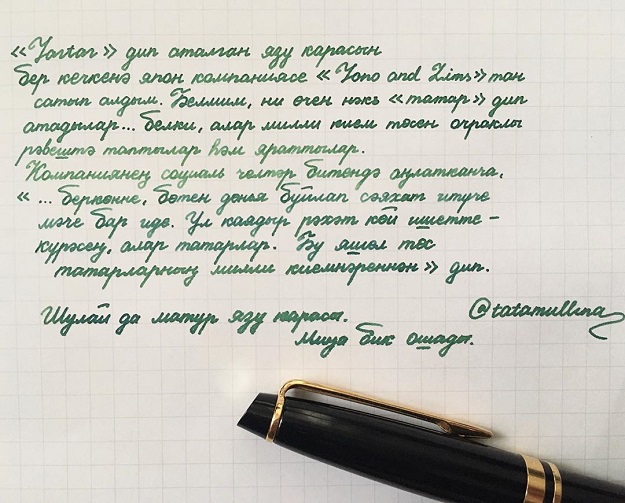 «Tartar» дип аталган язу карасын
бер кечкенә япон компаниясе «Tono and Lims»тан
сатып алдым. Белмим, ни өчен нәкъ «татар» дип
атадылар... белки, алар милли кием төсен очраклы
рәвештә таптылар һәм яраттылар.
Компаниянең социаль челтәр битендә аңлатканча,
«... беркөнне, бөтен дөнья буйлап сәяхәт итүче
мәче бар иде. Ул каядыр рәхәт көй ишетте -
күрәсең, алар татарлар. Бу яшел төс
татарларның милли киемнәреннән» дип.
Шулай да матур язу карасы.
Миңа бик ошады.
@tatamullina